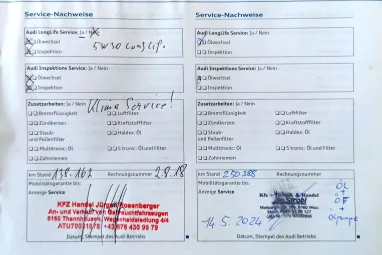 Service-Nachweise
Audi LongLife Service: Ja / Nein
Ölwechsel 5W30 LongLife.
Inspektion
Audi Inspektions Service: Ja / Nein
Ölwechsel
Inspektion
Zusatzarbeiten: Klima Service!
Bremsflüssigkeit Luftfilter
Zündkerzen Kraftstofffilter
Staub- und Pollenfilter Haldex: Öl
Multitronic: Öl S tronic: Öl und Filter
Zahnriemen
km Stand 138.162 Rechnungsnummer 2.8.18
Mobilitätsgarantie bis
Anzeige Service
KFZ Handel Jürgen Rosenberger
An- und Verkauf von Gebrauchtfahrzeugen
8160 Thannhausen, Wegscheidsiedlung 4/4
+43 676 430 99 79
Datum, Stempel des Audi Betriebs
Service-Nachweise
Audi LongLife Service: Ja / Nein
Ölwechsel
Inspektion
Audi Inspektions Service: Ja / Nein
Ölwechsel
Inspektion
Zusatzarbeiten: Ja / Nein
Bremsflüssigkeit Luftfilter
Zündkerzen Kraftstofffilter
Staub- und Pollenfilter Haldex: Öl
Multitronic: Öl S tronic: Öl und Filter
Zahnriemen
km Stand 250288 Rechnungsnummer
Mobilitätsgarantie bis
Anzeige Service
14.5.2024
Datum, Stempel des Audi Betriebs